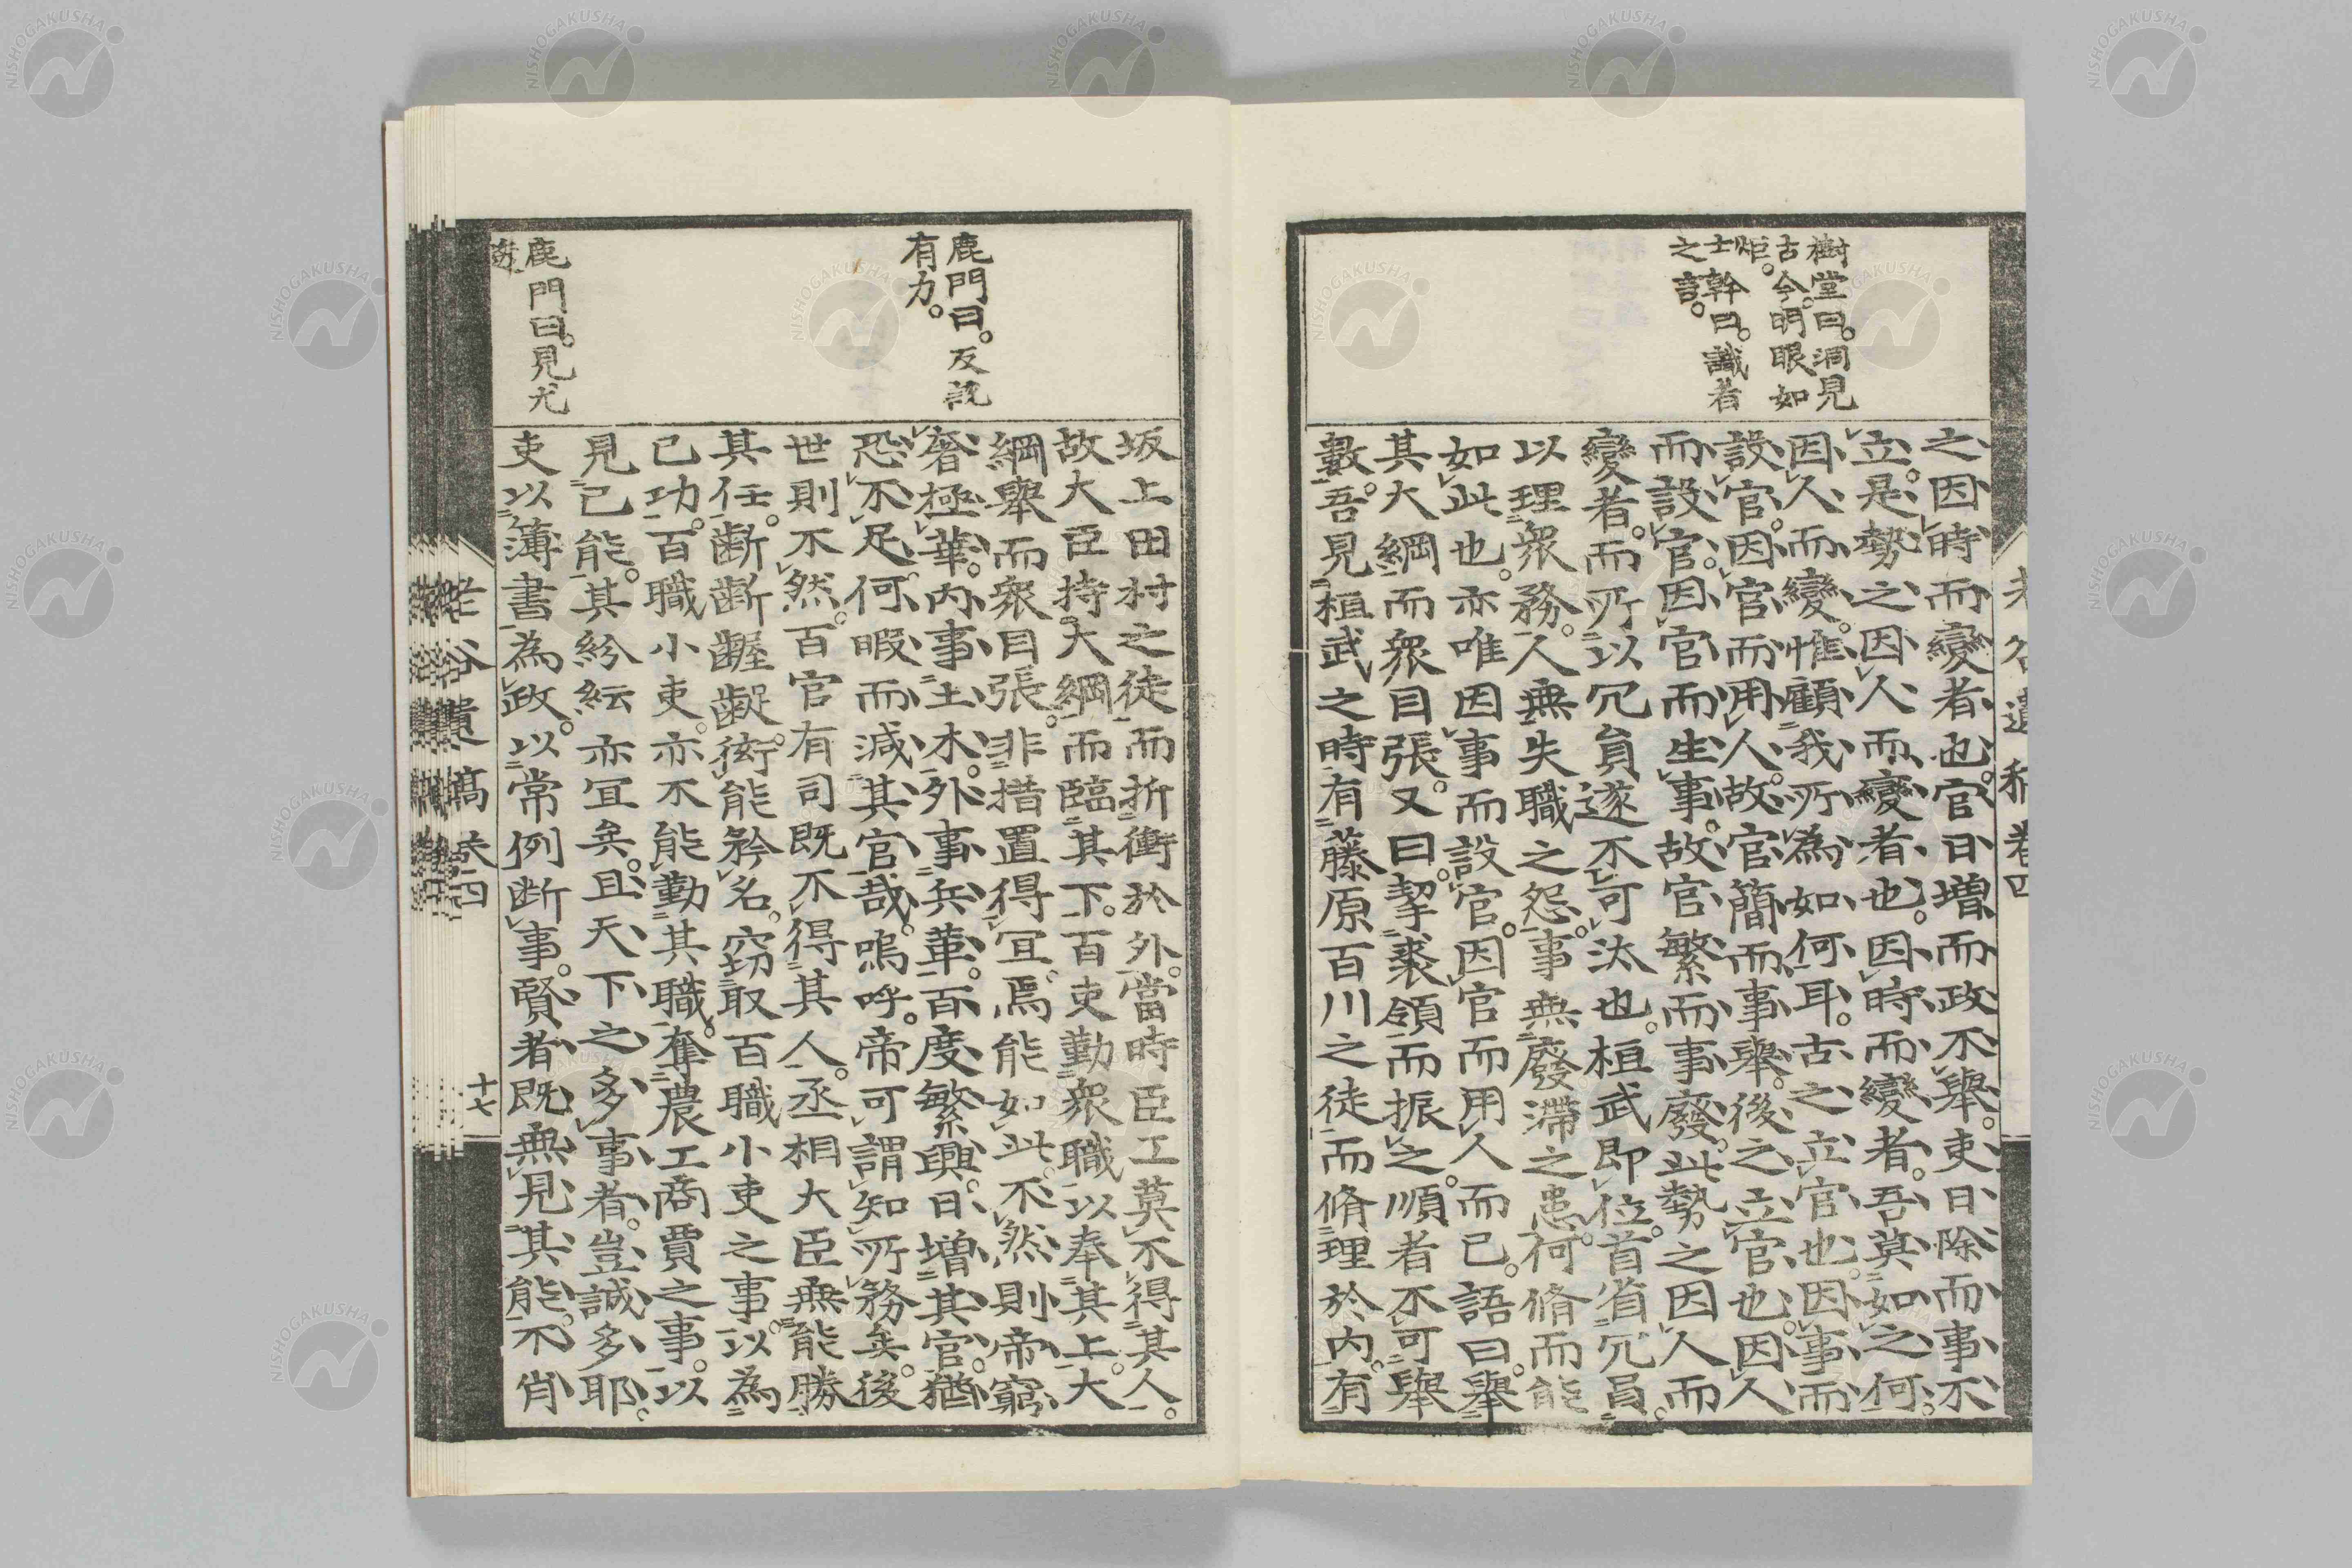 樹堂曰。洞見
古今。明眼如
炬。
士幹曰。識者
之言。
之因時而變者也。官日增而政不舉。吏日除而事不
立。是勢之因人而變者也。因時而變者。吾莫如之何。
因人而變。惟顧我所為如何耳。古之立官也。因事而
設官。因官而用人。故官簡而事舉。後之立官也。因人
而設官。因官而生事。故官繁而事廢。此勢之因人而
變者。而所以冗員遂不可汰也。桓武即位。首省冗員。
以理衆務。人無失職之怨。事無廢滯之患。何脩而能
如此也。亦唯因事而設官。因官而用人而已。語曰。舉
其大綱而衆目張。又曰。挈裘領而振之。順者不可舉
數。吾見桓武之時。有藤原百川之徒。而脩理於内。有
老谷遺稿 卷四
鹿門曰。反説
有力。
鹿門曰。見尤
遒
坂上田村之徒。而折衝於外。當時臣工莫不得其人。
故大臣持大綱而臨其下。百吏勤衆職以奉其上。大
綱舉而衆目張。非措置得宜。焉能如此。不然則帝窮
奢極華。内事土木。外事兵革。百度繁興。日增其官。猶
恐不足。何暇而減其官哉。嗚呼。帝可謂知所務矣。後
世則不然。百官有司既不得其人。丞相大臣無能勝
其任。齗齗齷齪。衒能矜名。竊取百職小吏之事。以為
己功。百職小吏。亦不能勤其職。奪農工商賈之事。以
見己能。其紛紜亦宜矣。且天下之多事者。豈誠多耶。
吏以簿書為政。以常例断事。賢者既無見其能。不肖
老谷遺稿 卷四
十七